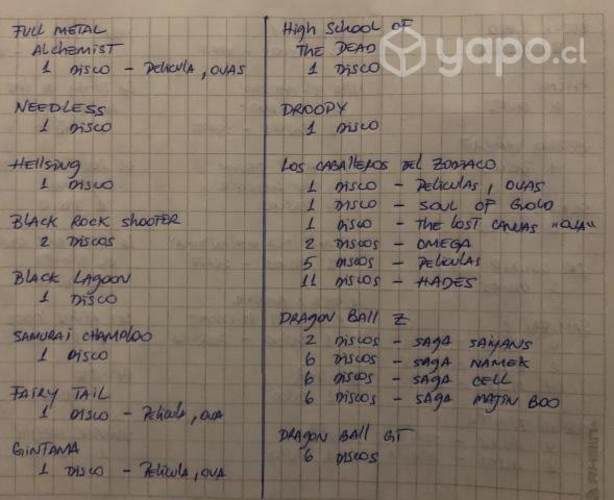 FULL METAL
ALCHEMIST
1 DISCO - PELICULA, OVAS
NEEDLESS
1 DISCO
HELLSING
1 DISCO
BLACK ROCK SHOOTER
2 DISCOS
BLACK LAGOON
1 DISCO
SAMURAI CHAMPLOO
1 DISCO
FAIRY TAIL
1 DISCO - PELICULA, OVA
GINTAMA
1 DISCO - PELICULA, OVA
HIGH SCHOOL OF
THE DEAD
1 DISCO
DROOPY
1 DISCO
LOS CABALLEROS DEL ZODIACO
1 DISCO - PELICULAS, OVAS
1 DISCO - SOUL OF GOLD
1 DISCO - THE LOST CANVAS "OVA"
2 DISCOS - OMEGA
5 DISCOS - PELICULAS
11 DISCOS - HADES
DRAGON BALL Z
2 DISCOS - SAGA SAIYANS
6 DISCOS - SAGA NAMEK
6 DISCOS - SAGA CELL
6 DISCOS - SAGA MAJIN BOO
DRAGON BALL GT
6 DISCOS
yapo.cl